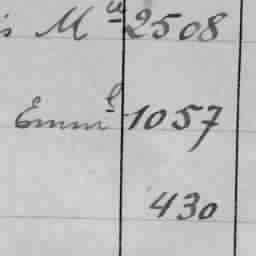 is Mu 2508
Emml 1057
430